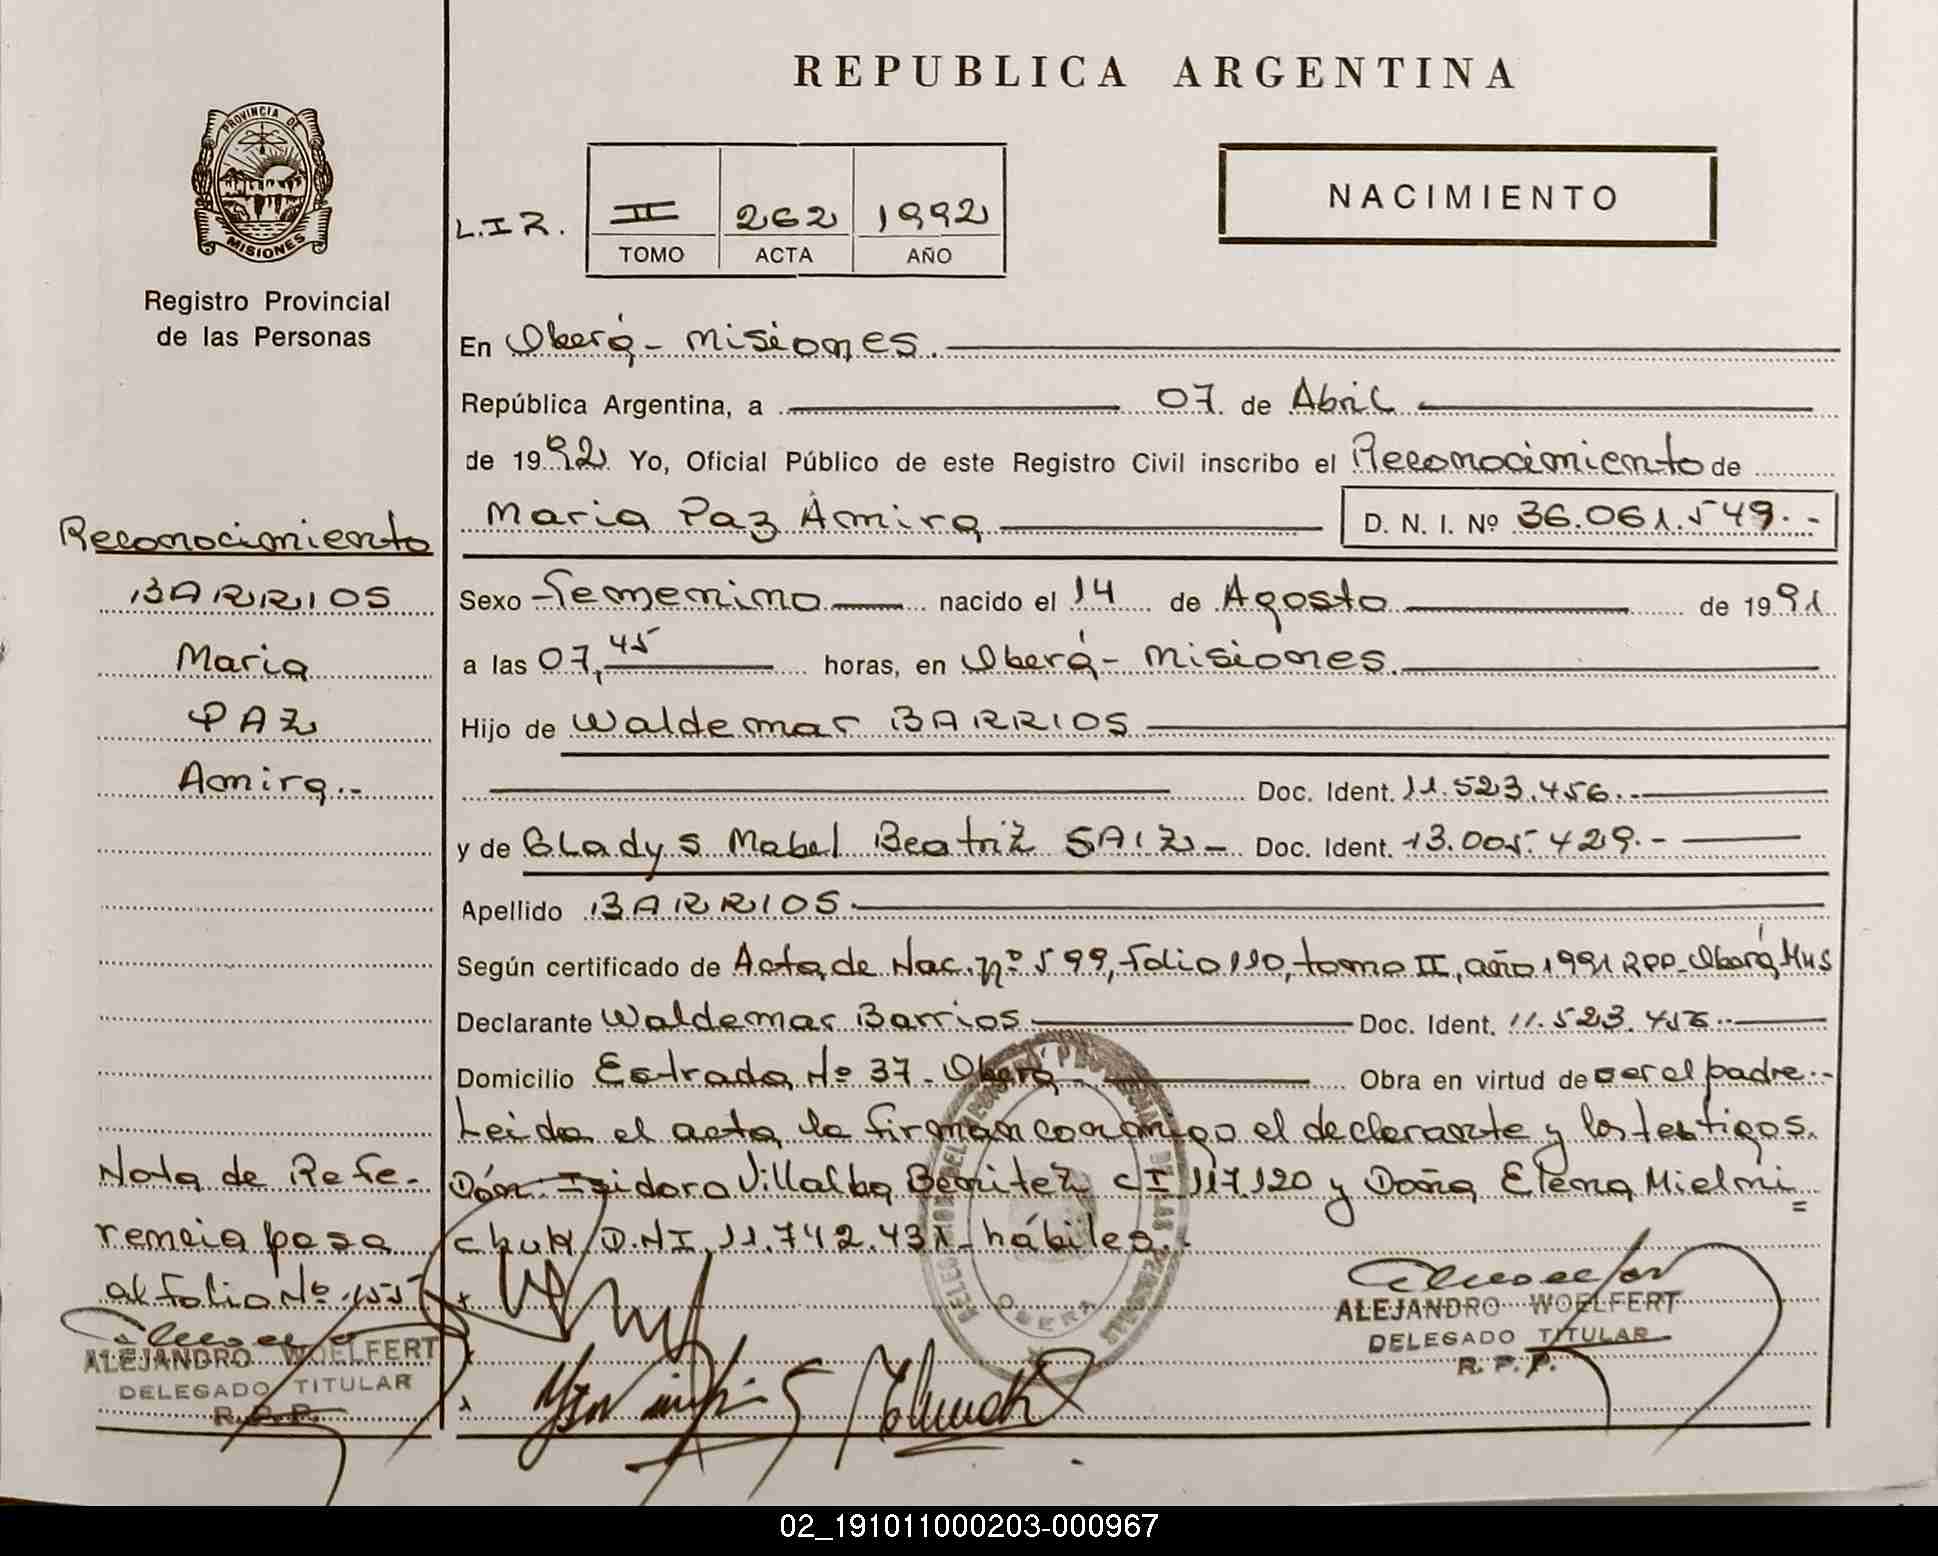 REPUBLICA ARGENTINA
PROVINCIA DE
MISIONES
Registro Provincial
de las Personas
L.I.R.
II 262 1992
TOMO ACTA AÑO
NACIMIENTO
En Oberá - Misiones.
República Argentina, a 07 de Abril
de 1992 Yo, Oficial Público de este Registro Civil inscribo el Reconocimiento de
Maria Paz Amira D. N. I. Nº 36.061.549.-
Sexo Femenino nacido el 14 de Agosto de 1991
a las 07,45 horas, en Oberá - Misiones.
Hijo de Waldemar BARRIOS
Doc. Ident. 11.523.456.-
y de Gladys Mabel Beatriz SAIZ - Doc. Ident. 13.005.429.-
Apellido BARRIOS
Según certificado de Acta de Nac. nº 599, folio 110, tomo II, año 1991 RPP - Oberá, Mns
Declarante Waldemar Barrios Doc. Ident. 11.523.456.-
Domicilio Estrada Nº 37 - Oberá - Obra en virtud de ser el padre.-
Leida el acta, la firman conmigo el declarante y los testigos.
Dón Isidoro Villalba Benitez CI 117.120 y Doña Elena Mielni=
chuk D.N.I. 11.742.431 - hábiles.
Reconocimiento
BARRIOS
Maria
PAZ
Amira.-
Nota de Refe-
rencia pasa
al folio Nº 155
ALEJANDRO WOELFERT
DELEGADO TITULAR
R. P. P.
ALEJANDRO WOELFERT
DELEGADO TITULAR
R. P. P.
OBERA
02_191011000203-000967